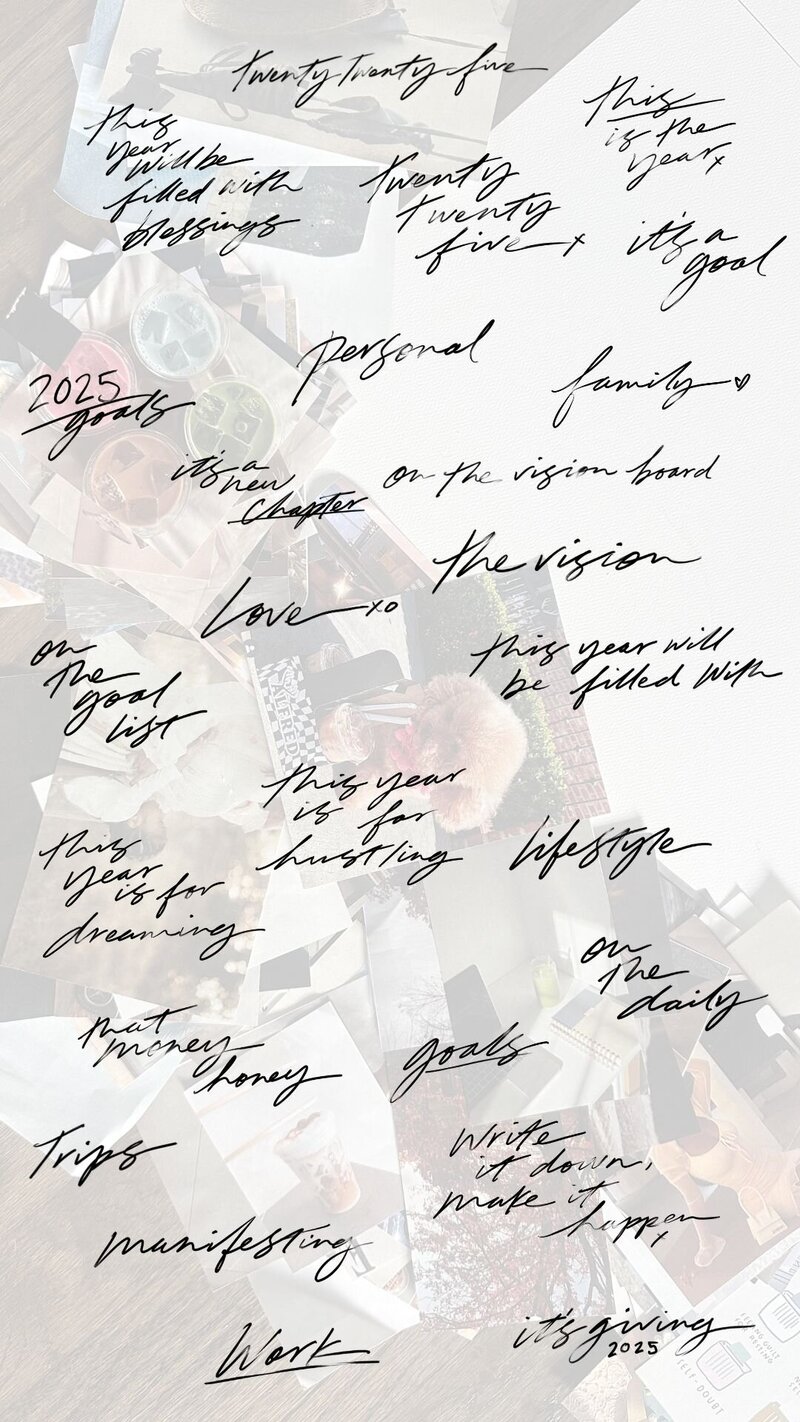 Twenty Twenty five
this
year
will be
filled with
blessings
Twenty
Twenty
five x
this
is the
year x
it's a
goal
personal
2025
goals
family
it's a
new
chapter
on the vision board
the vision
Love xo
on
the
goal
list
this year will
be filled with
this year
is for
hustling
lifestyle
this
year
is for
dreaming
on
the
daily
that
money
honey
goals
Trips
write
it down,
make it
happen
x
manifesting
Work
it's giving
2025
ALFRED
SELF-DOUBT